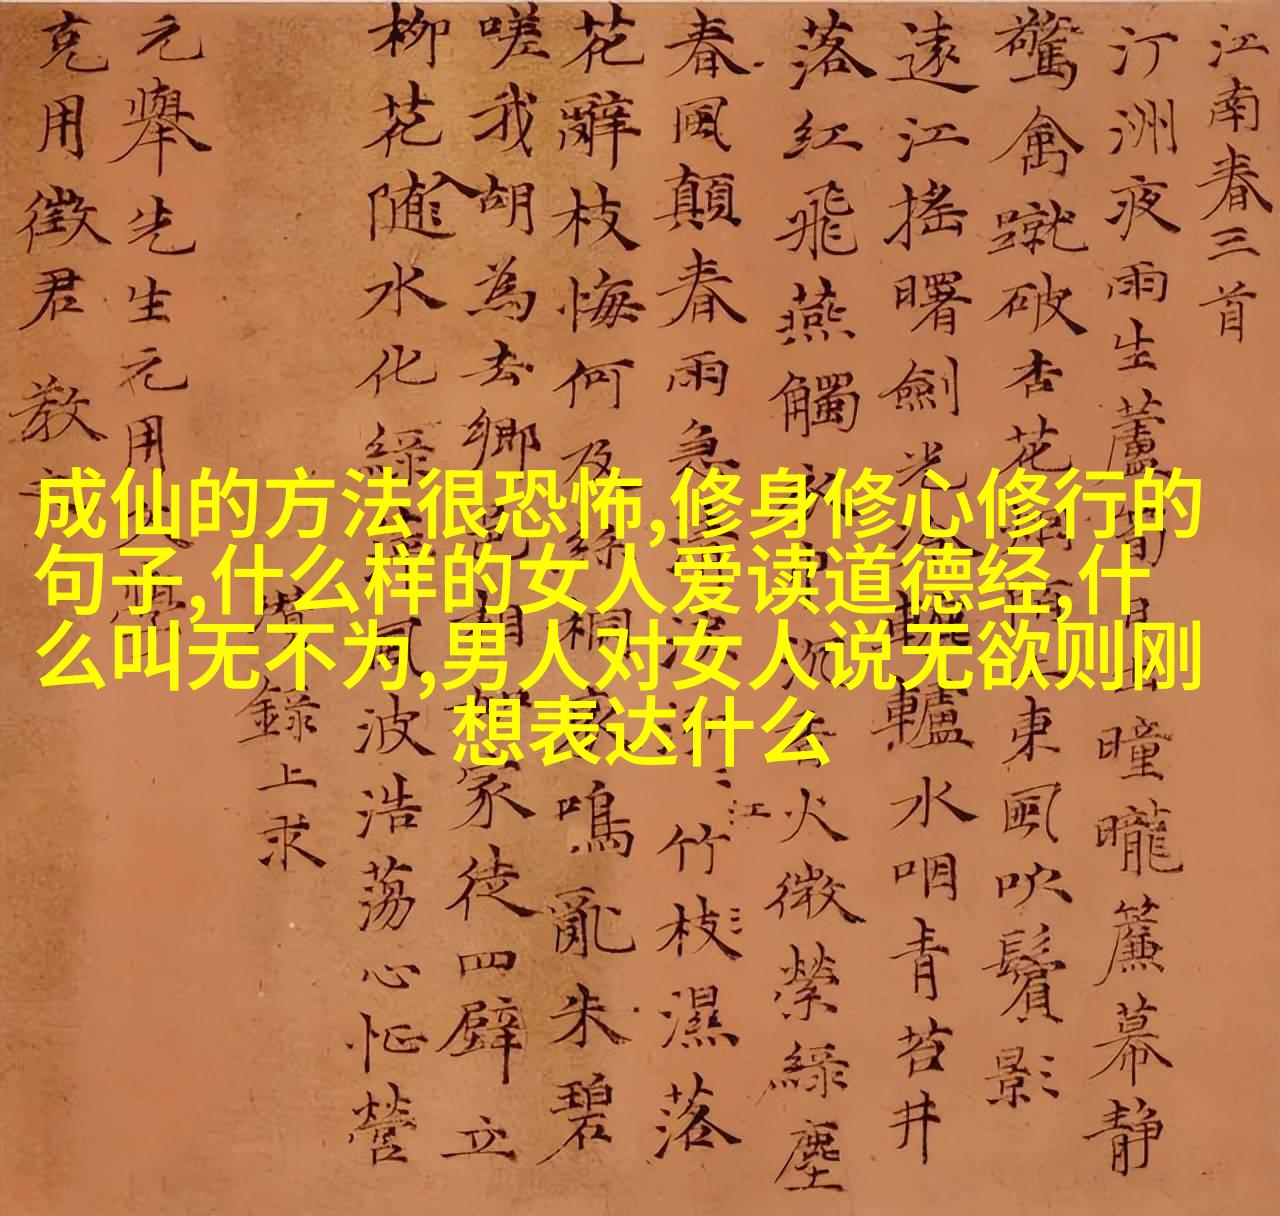 江南春三首
汀洲夜雨生蘆筍日出曈曨簾幕静
驚禽蹴破杏花東風吹鬢影
遠江搖曙劍光轆轤水咽青苔井
落紅飛燕觸火微縈綠塵
春風顛春雨急江竹枝濕落
花辭枝悔何及絲桐哀鳴亂朱碧
嗟我胡為去鄉邑相如家徒四壁立
柳花入隨水化綠風波浩蕩心怔營
錄上求
元舉先生元用文學
克用徵君教
成仙的方法很恐怖,修身修心修行的
句子,什么样的女人爱读道德经,什
么叫无不为,男人对女人说无欲则刚
想表达什么